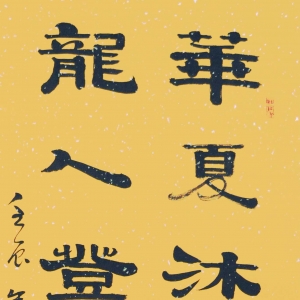 華夏沐
龍人登
壬辰